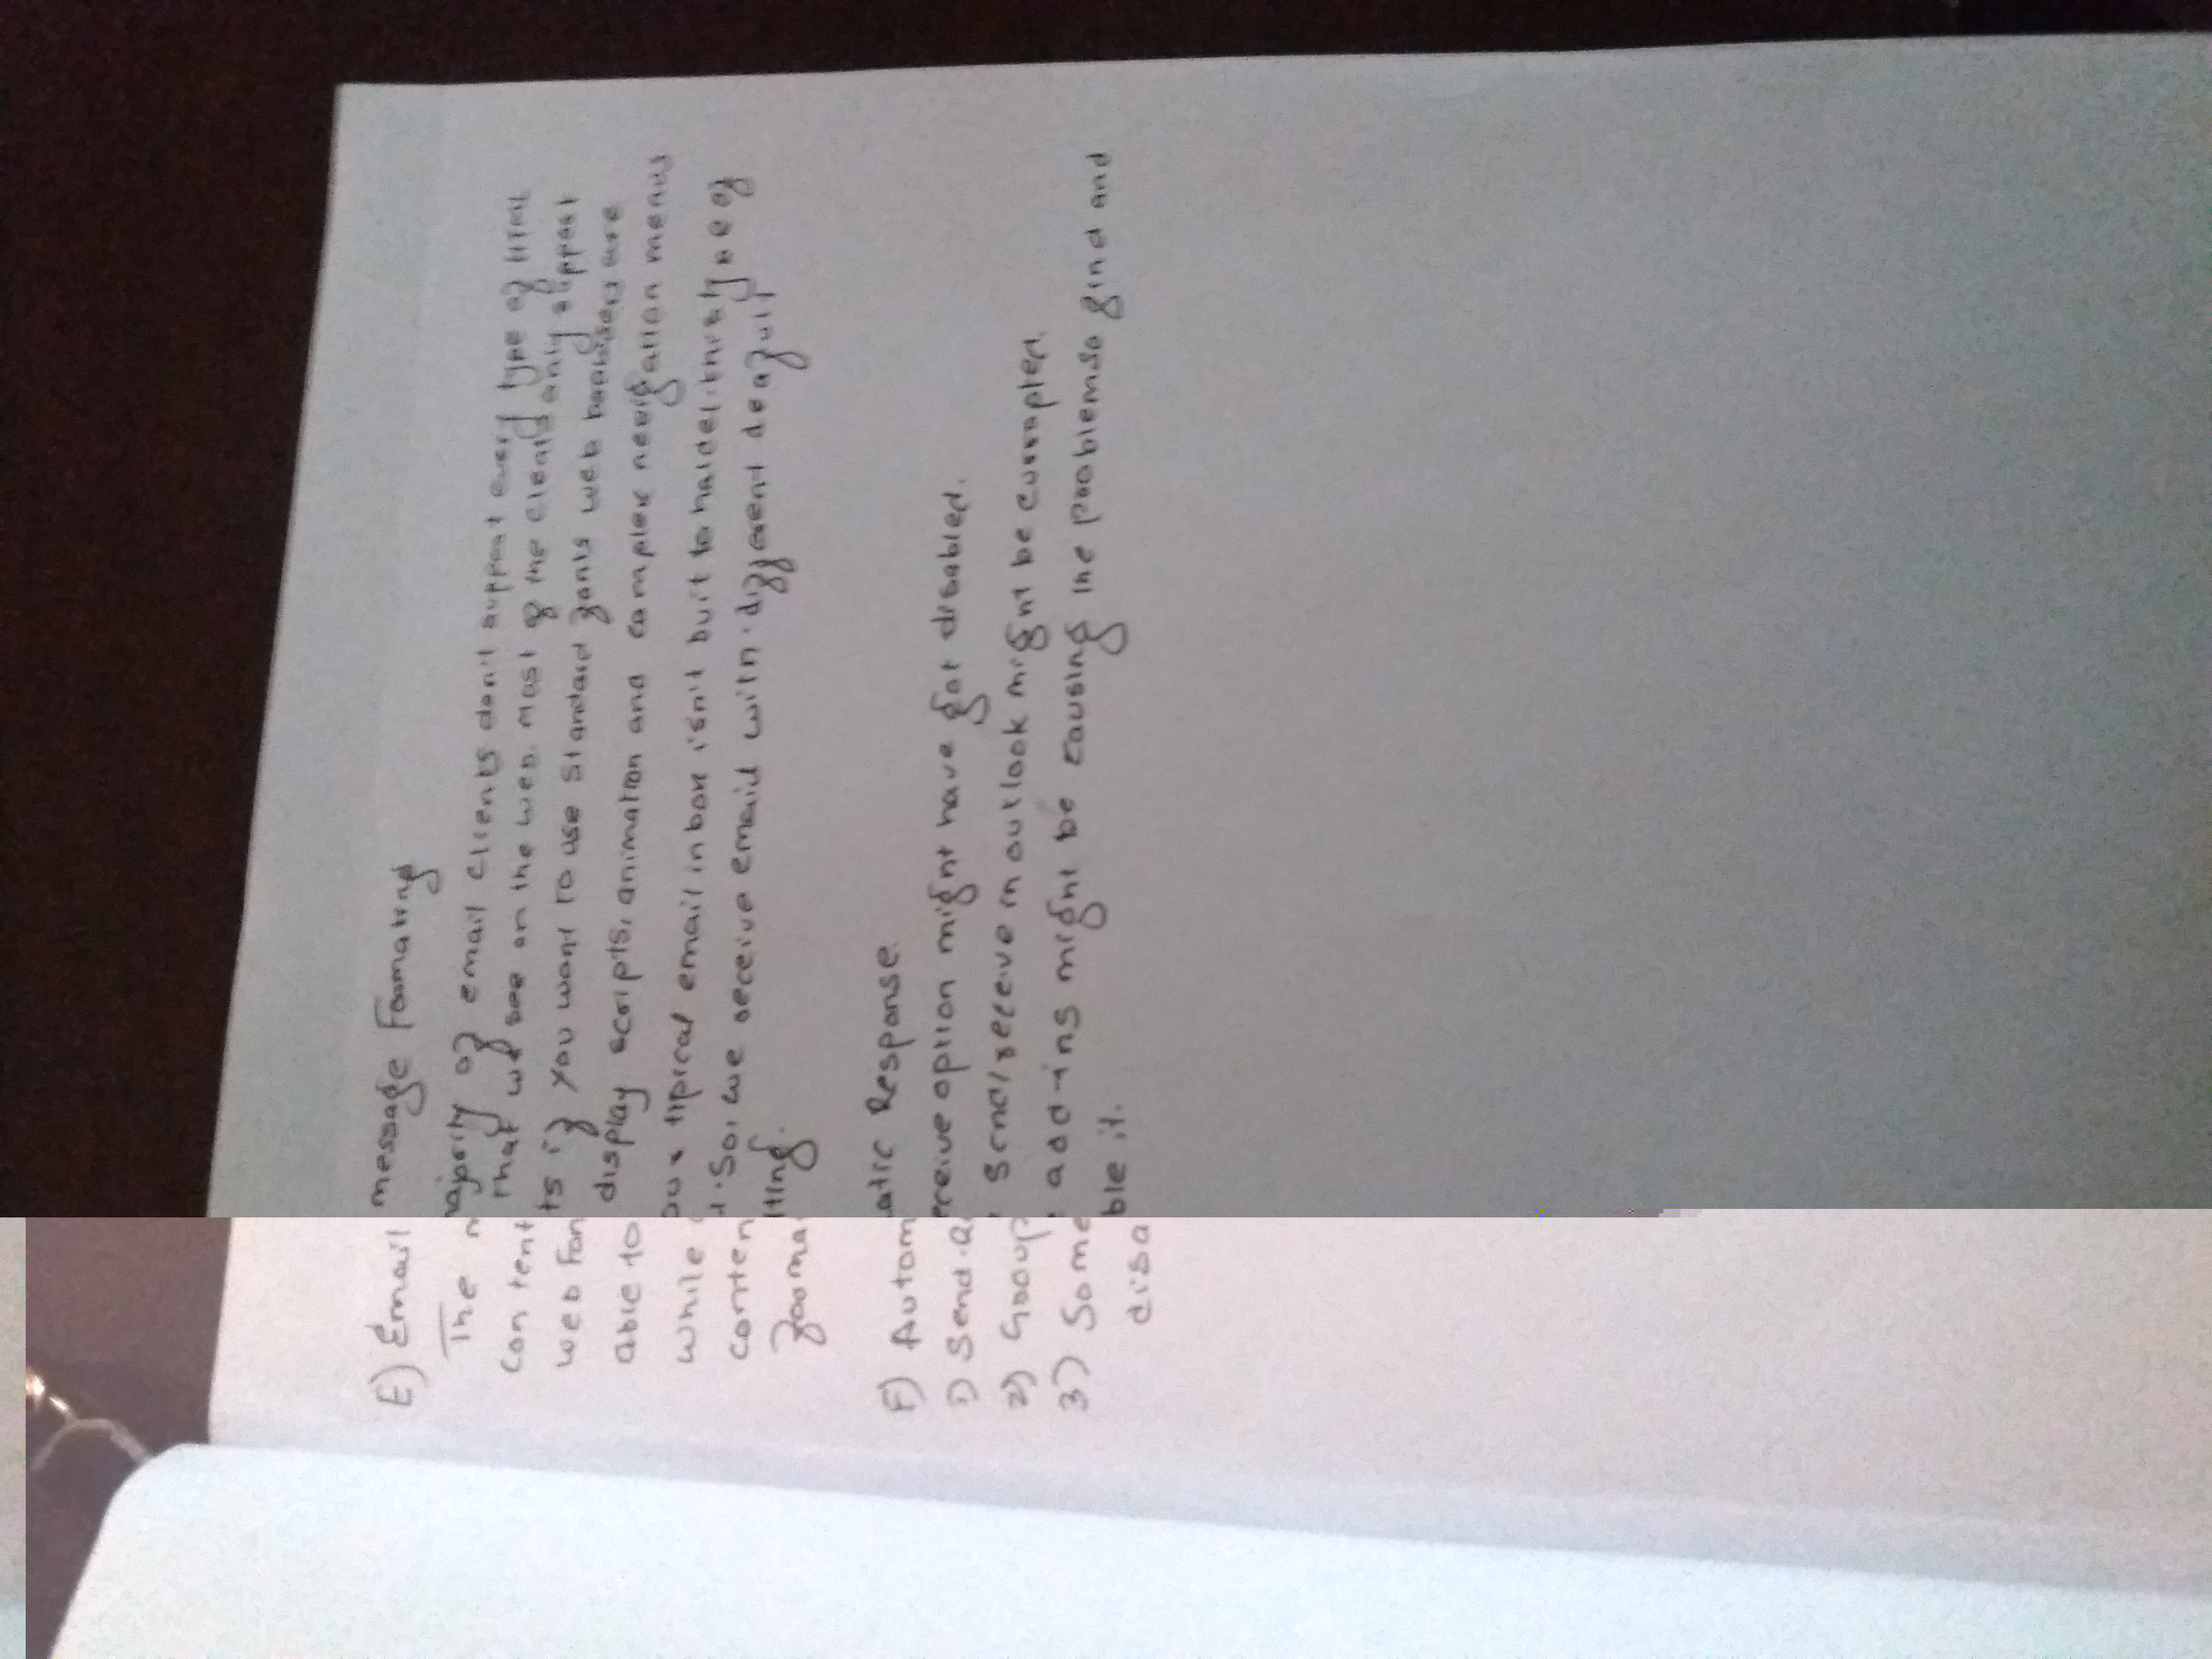 E) Email message Formating
The majority of email clients don't support every type of HTML
content that we see on the web. most of the clients only support
web fonts if you want to use standard fonts web browsers are
able to display scripts, animation and complex navigation menus
while your tipical email in box isn't built to handel
content. So, we receive emaild with different deafult
formatting.
F) Automatic Response.
1) Send receive option might have got disabled.
2) Group send/receive in outlook might be corrupted.
3) Some add-ins might be causing the problemso find and
disable it.